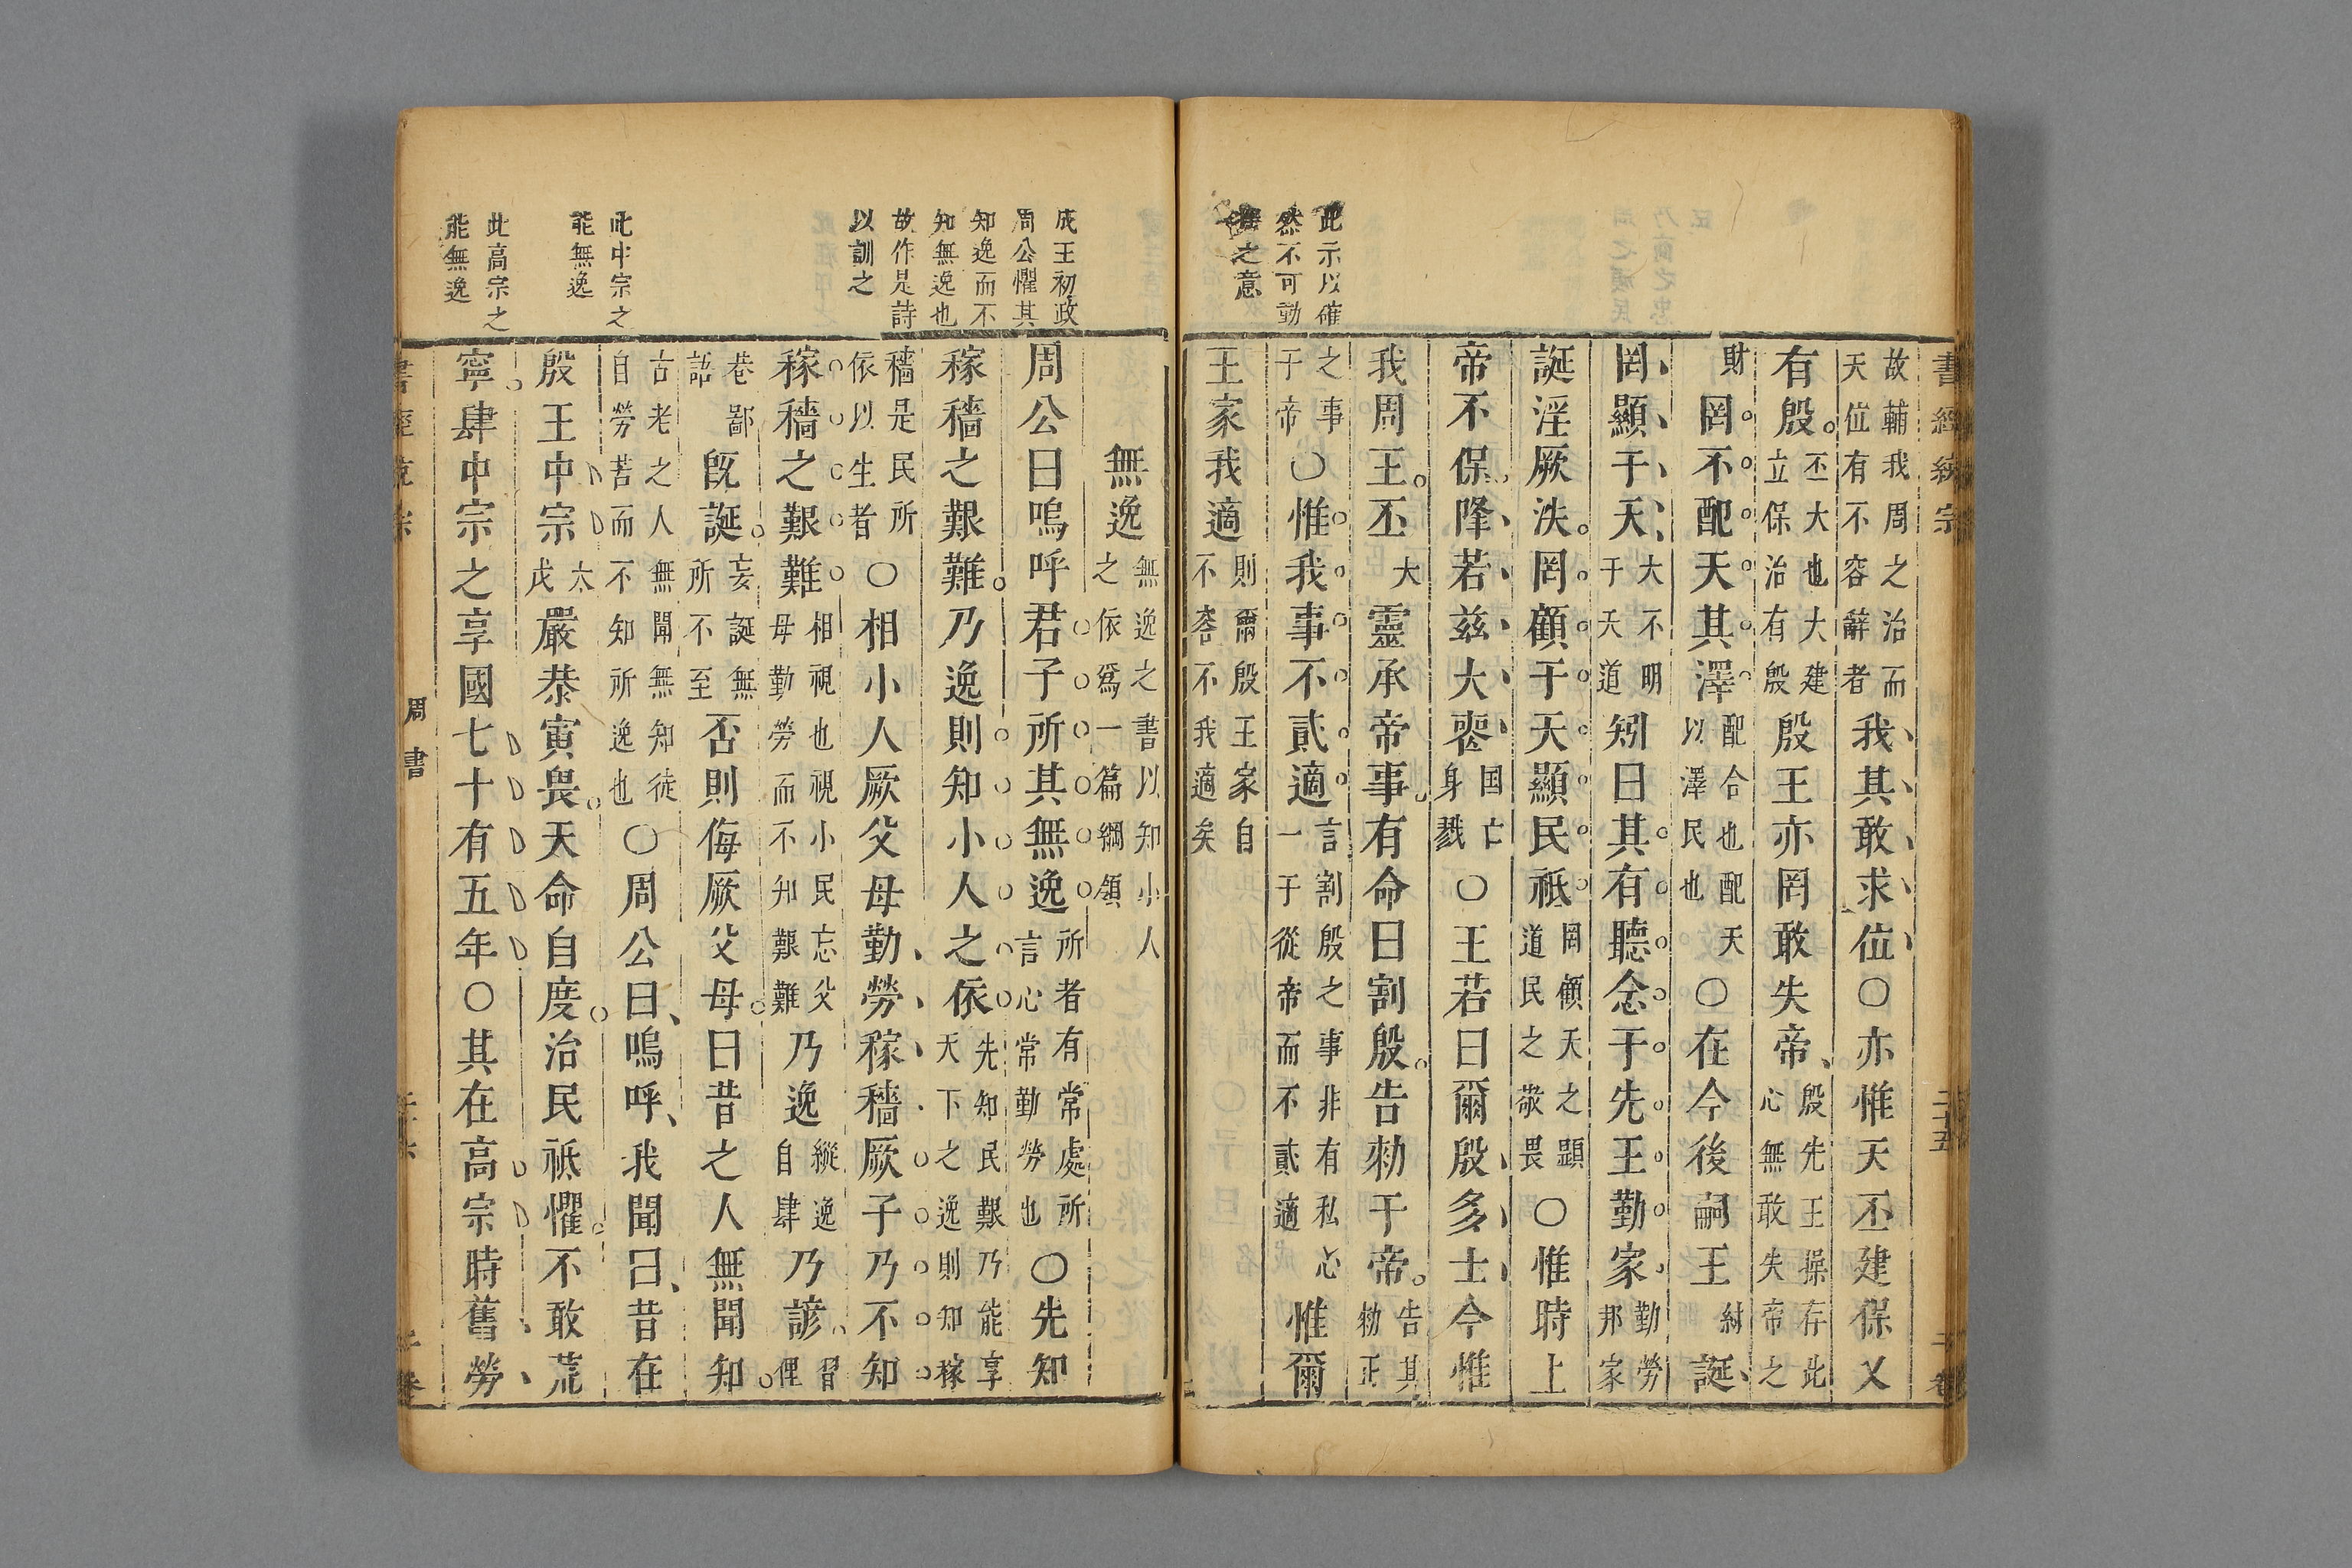 書經統宗
二十五
故輔我周之治而天位有不容辭者我其敢求位○亦惟天丕建保乂
有殷丕大也大建立保治有殷殷王亦罔敢失帝殷先王操存此心無敢失帝之
財罔不配天其澤配合也配天以澤民也○在今後嗣王紂誕
罔顯于天大不明于天道矧曰其有聽念于先王勤家勤勞邦家
誕淫厥泆罔顧于天顯民祗罔顧天之顯道民之敬畏○惟時上
帝不保降若茲大喪国亡身戮○王若曰爾殷多士今惟
我周王丕大靈承帝事有命曰割殷告勑于帝告其勑正
之事于帝○惟我事不貳適言割殷之事非有私心一于從帝而不貳適惟爾
王家我適則爾殷王家自不容不我適矣
此示以確
然不可動
搖之意
無逸無逸之書以知小人之依爲一篇綱領
周公曰嗚呼君子所其無逸所者有常處所言心常勤勞也○先知
稼穡之艱難乃逸則知小人之依先知民艱乃能享天下之逸則知稼
穡是民所依以生者○相小人厥父母勤勞稼穡厥子乃不知
稼穡之艱難相視也視小民忘父母勤勞而不知艱難乃逸縱逸自肆乃諺習俚
巷鄙語旣誕妄誕無所不至否則侮厥父母曰昔之人無聞知
古老之人無聞無知徒自勞苦而不知所逸也○周公曰嗚呼我聞曰昔在
殷王中宗太戊嚴恭寅畏天命自度治民祗懼不敢荒
寧肆中宗之享國七十有五年○其在高宗時舊勞
成王初政
周公懼其
知逸而不
知無逸也
故作是詩
以訓之
此中宗之
能無逸
此高宗之
能無逸
周書